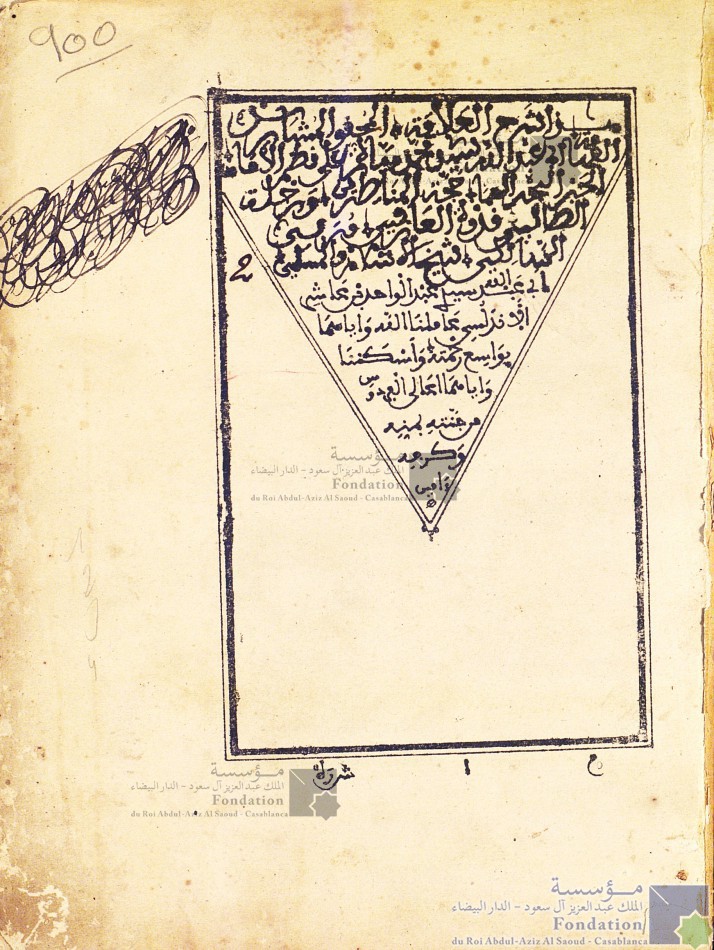 900
هذا شرح العلامة المحقق المشارك
الفهامة ابي عبد الله سيدي محمد ميارة على نظم الامام
الحبر البحر الهمام حجة المناظرين ورحلة
الطالبين قدوة العارفين ومربي
شيخ الاسلام والمسلمين
ابي عبد الله سيدي عبد الواحد بن عاشر
الاندلسي عاملنا الله واياهما
بواسع رحمته واسكننا
واياهما اعالي الفردوس
من جنته بمنه
وكرمه
ءامين
2
مؤسسة
الملك عبد العزيز آل سعود - الدار البيضاء
Fondation
du Roi Abdul-Aziz Al Saoud - Casablanca
ح ا
مؤسسة
الملك عبد العزيز آل سعود - الدار البيضاء
Fondation
du Roi Abdul-Aziz Al Saoud - Casablanca
مؤسسة
الملك عبد العزيز آل سعود - الدار البيضاء
Fondation
du Roi Abdul-Aziz Al Saoud - Casablanca